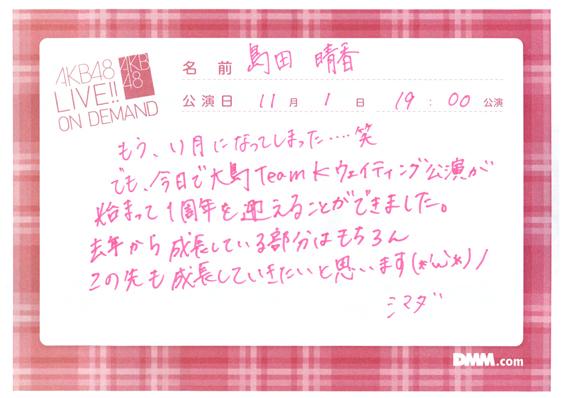 AKB48
LIVE!!
ON DEMAND
AKB
48
名前 島田 晴香
公演日 11月 1日 19:00公演
もう、11月になってしまった‥‥笑
でも、今日で大島Team Kウェイティング公演が
始まって1周年を迎えることができました。
去年から成長している部分はもちろん
この先も成長していきたいと思います(*'ω'*)ノ
シマダ
DMM.com